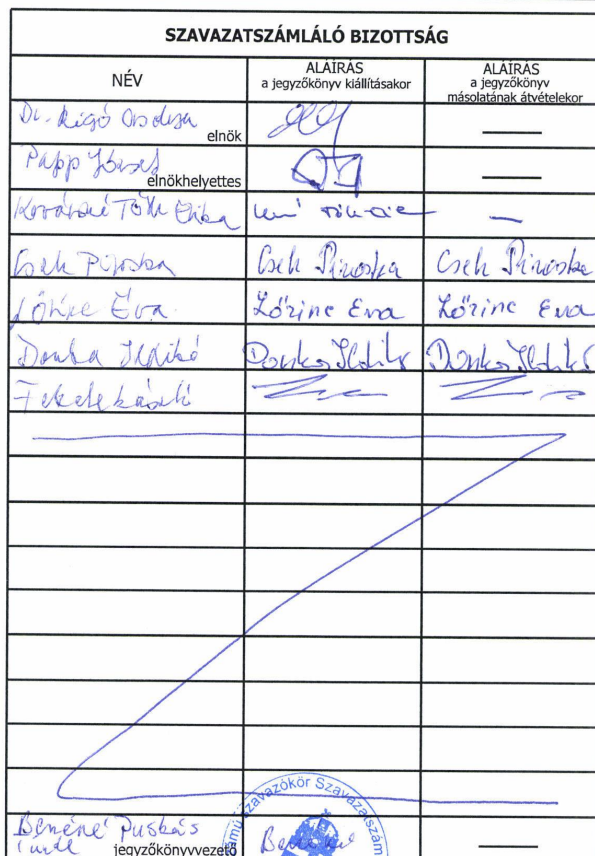 SZAVAZATSZÁMLÁLÓ BIZOTTSÁG
NÉV
ALÁÍRÁS
a jegyzőkönyv kiállításakor
ALÁÍRÁS
a jegyzőkönyv
másolatának átvételekor
Dr. Rigó
elnök
Papp József
elnökhelyettes
Kovácsné Tóth Erika
Cseh Piroska Cseh Piroska Cseh Piroska
Lőrinc Éva Lőrinc Éva Lőrinc Éva
Donka Ildikó Donka Ildikó Donka Ildikó
Fekete László
Benéné Puskás
Tünde jegyzőkönyvvezető Benéné
számú szavazókör Szavazatszám